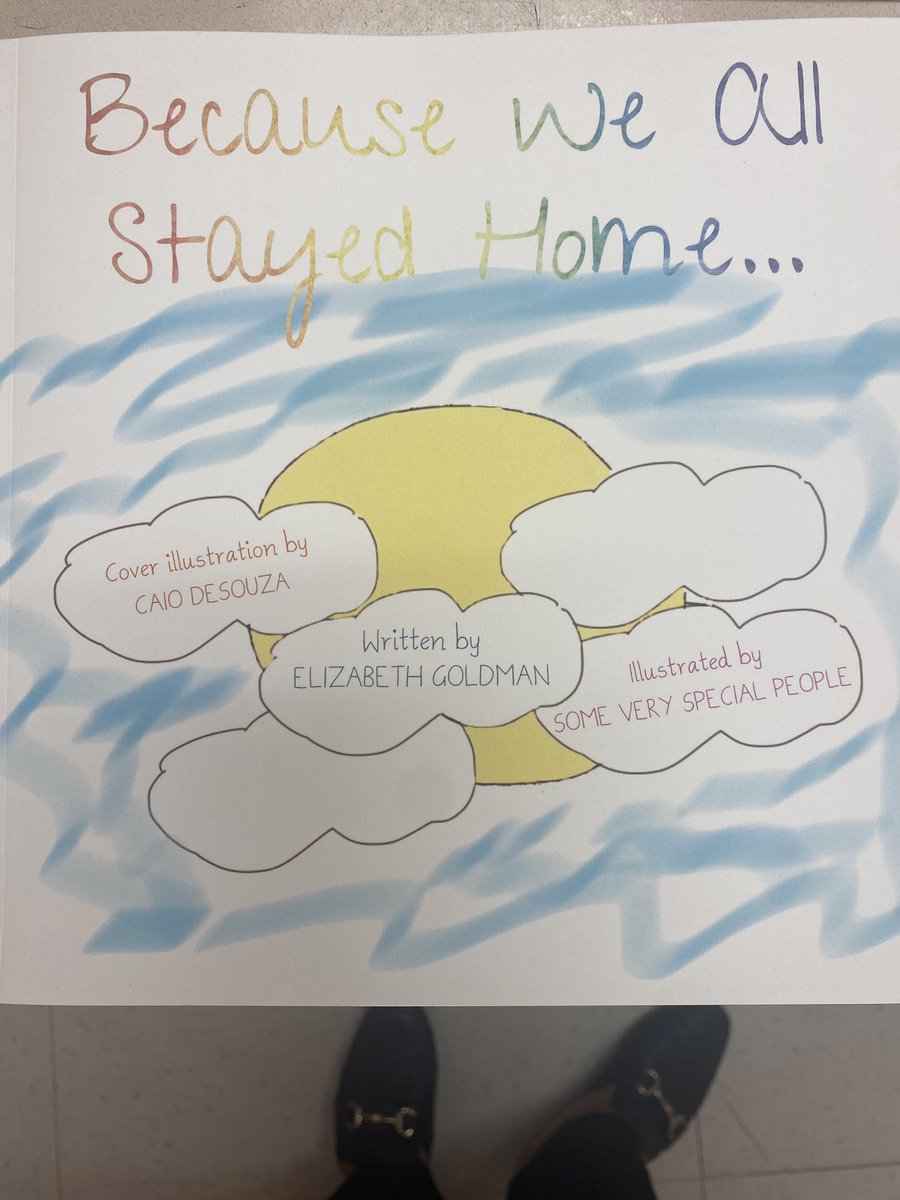 Because We All
Stayed Home...
Cover illustration by
CAIO DESOUZA
Written by
ELIZABETH GOLDMAN
Illustrated by
SOME VERY SPECIAL PEOPLE